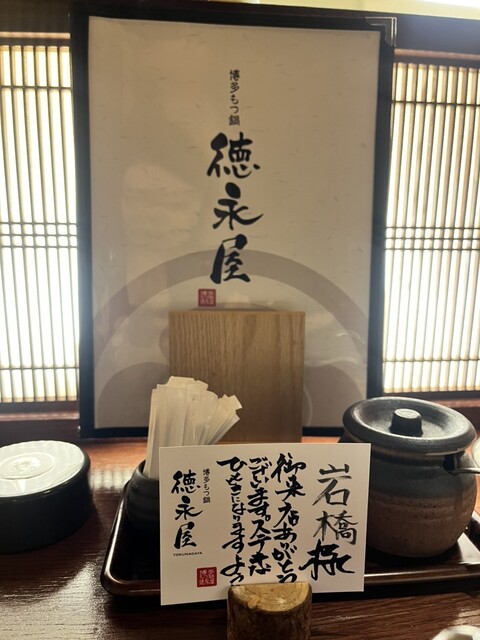 博多もつ鍋
徳永屋
岩橋様
御来店ありがとう
ございます。ステキな
ひとときになりますよう
博多もつ鍋
徳永屋
TOKUNAGAYA